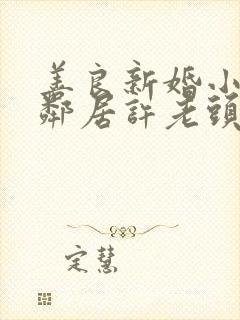 善良新婚小
鄰居許老頭
定慧